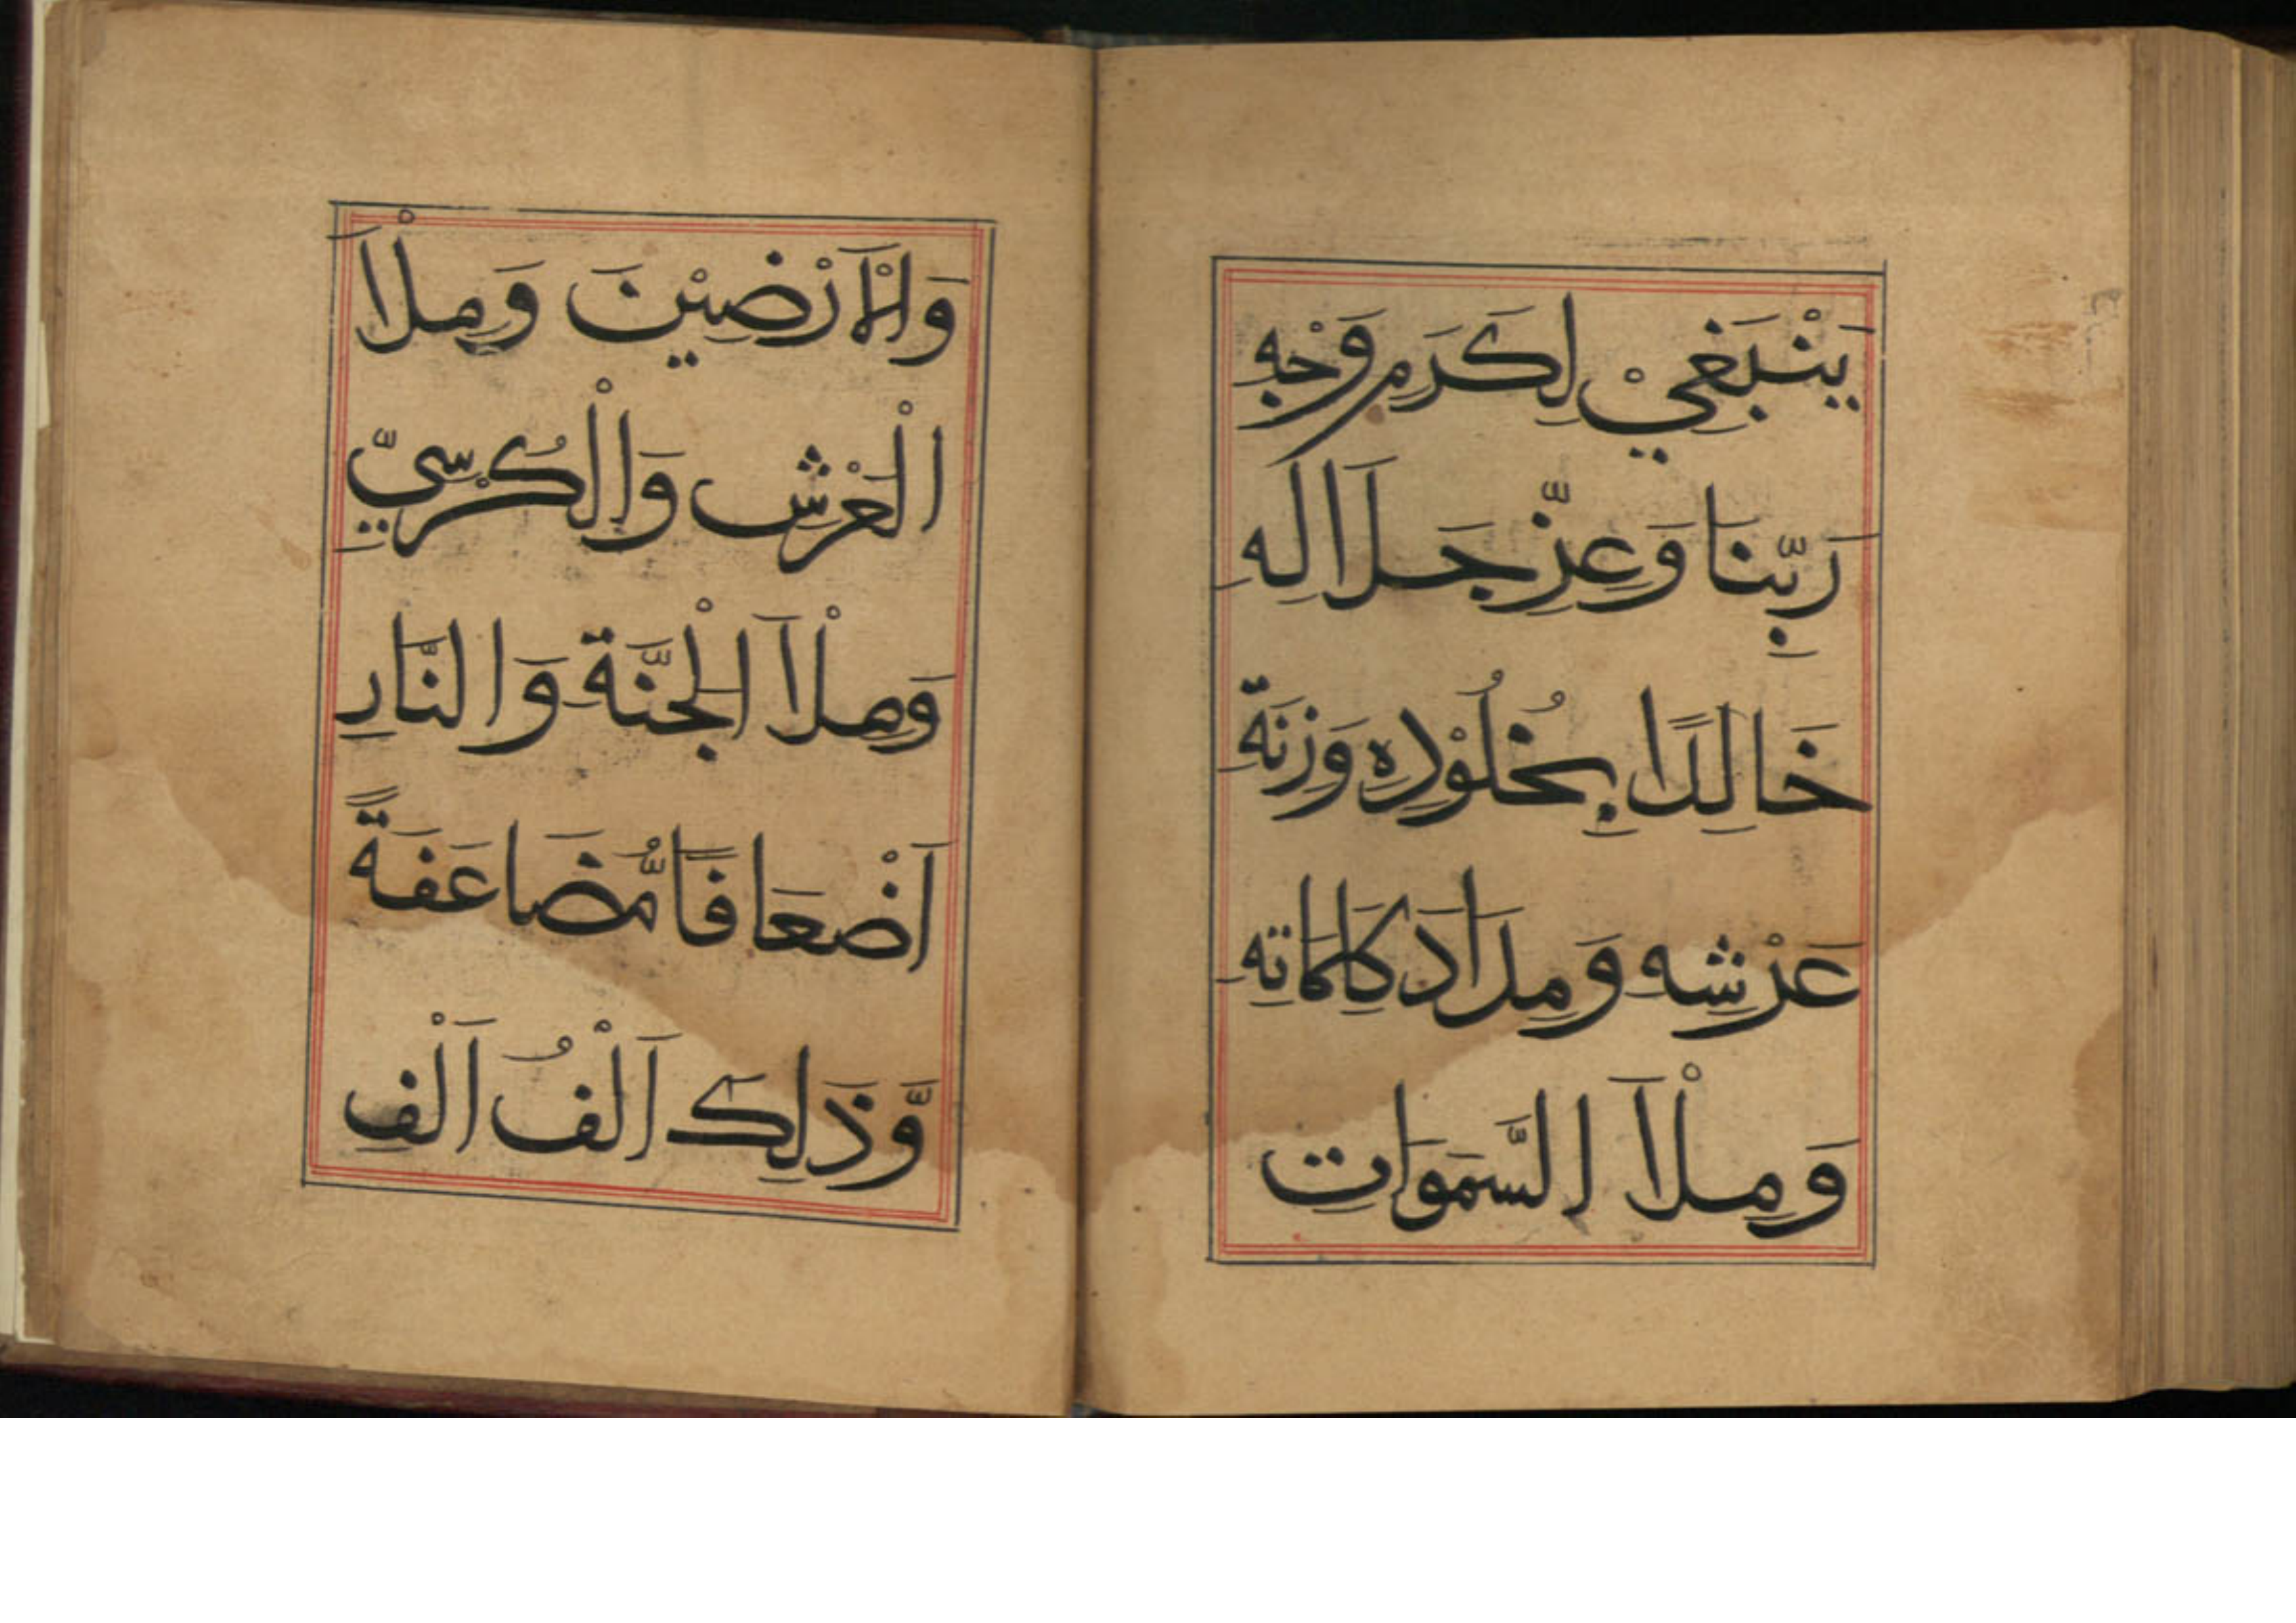 يَنْبَغِيْ لِكَرَمِ وَجْهِ
رَبِّنَا وَعِزِّ جَلَالِهِ
خَالِدًا بِخُلُوْدِهٖ وَزِنَةِ
عَرْشِهِ وَمِدَادَ كَلِمَاتِهِ
وَمِلْاَ السَّمَوَاتِ
وَالْاَرْضِيْنَ وَمِلْاَ
الْعَرْشِ وَالْكُرْسِيِّ
وَمِلْاَ الْجَنَّةِ وَالنَّارِ
اَضْعَافًا مُّضَاعَفَةً
وَّذَلِكَ اَلْفُ اَلْفِ